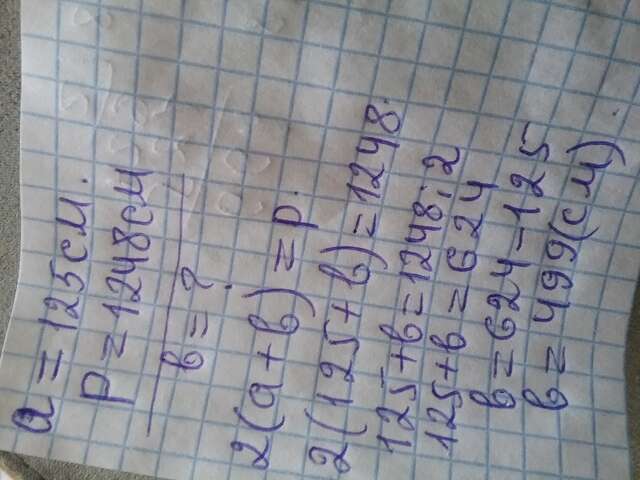 a = 125см.
P = 1248см
в = ?
2(a + в) = p.
2(125 + в) = 1248.
125 + в = 1248 : 2
125 + в = 624
в = 624 - 125
в = 499(см).